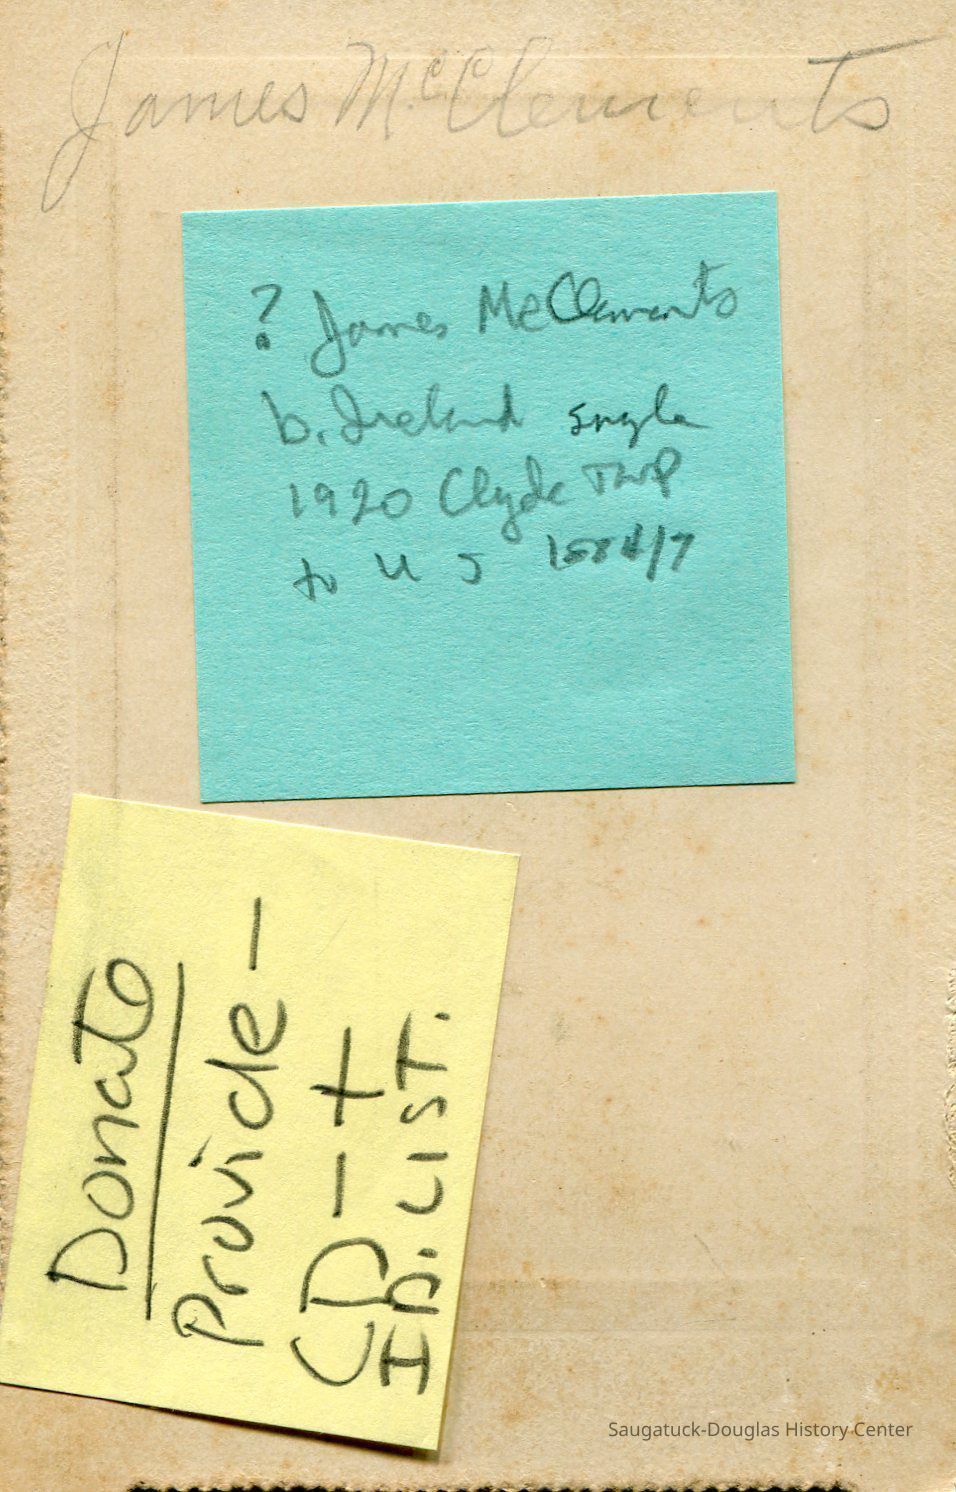 James McClements
? James McClements
b. Ireland single
1920 Clyde TWP
to US 1884/7
Donato
Provide -
CD - +
ID. LIST.
Saugatuck-Douglas History Center